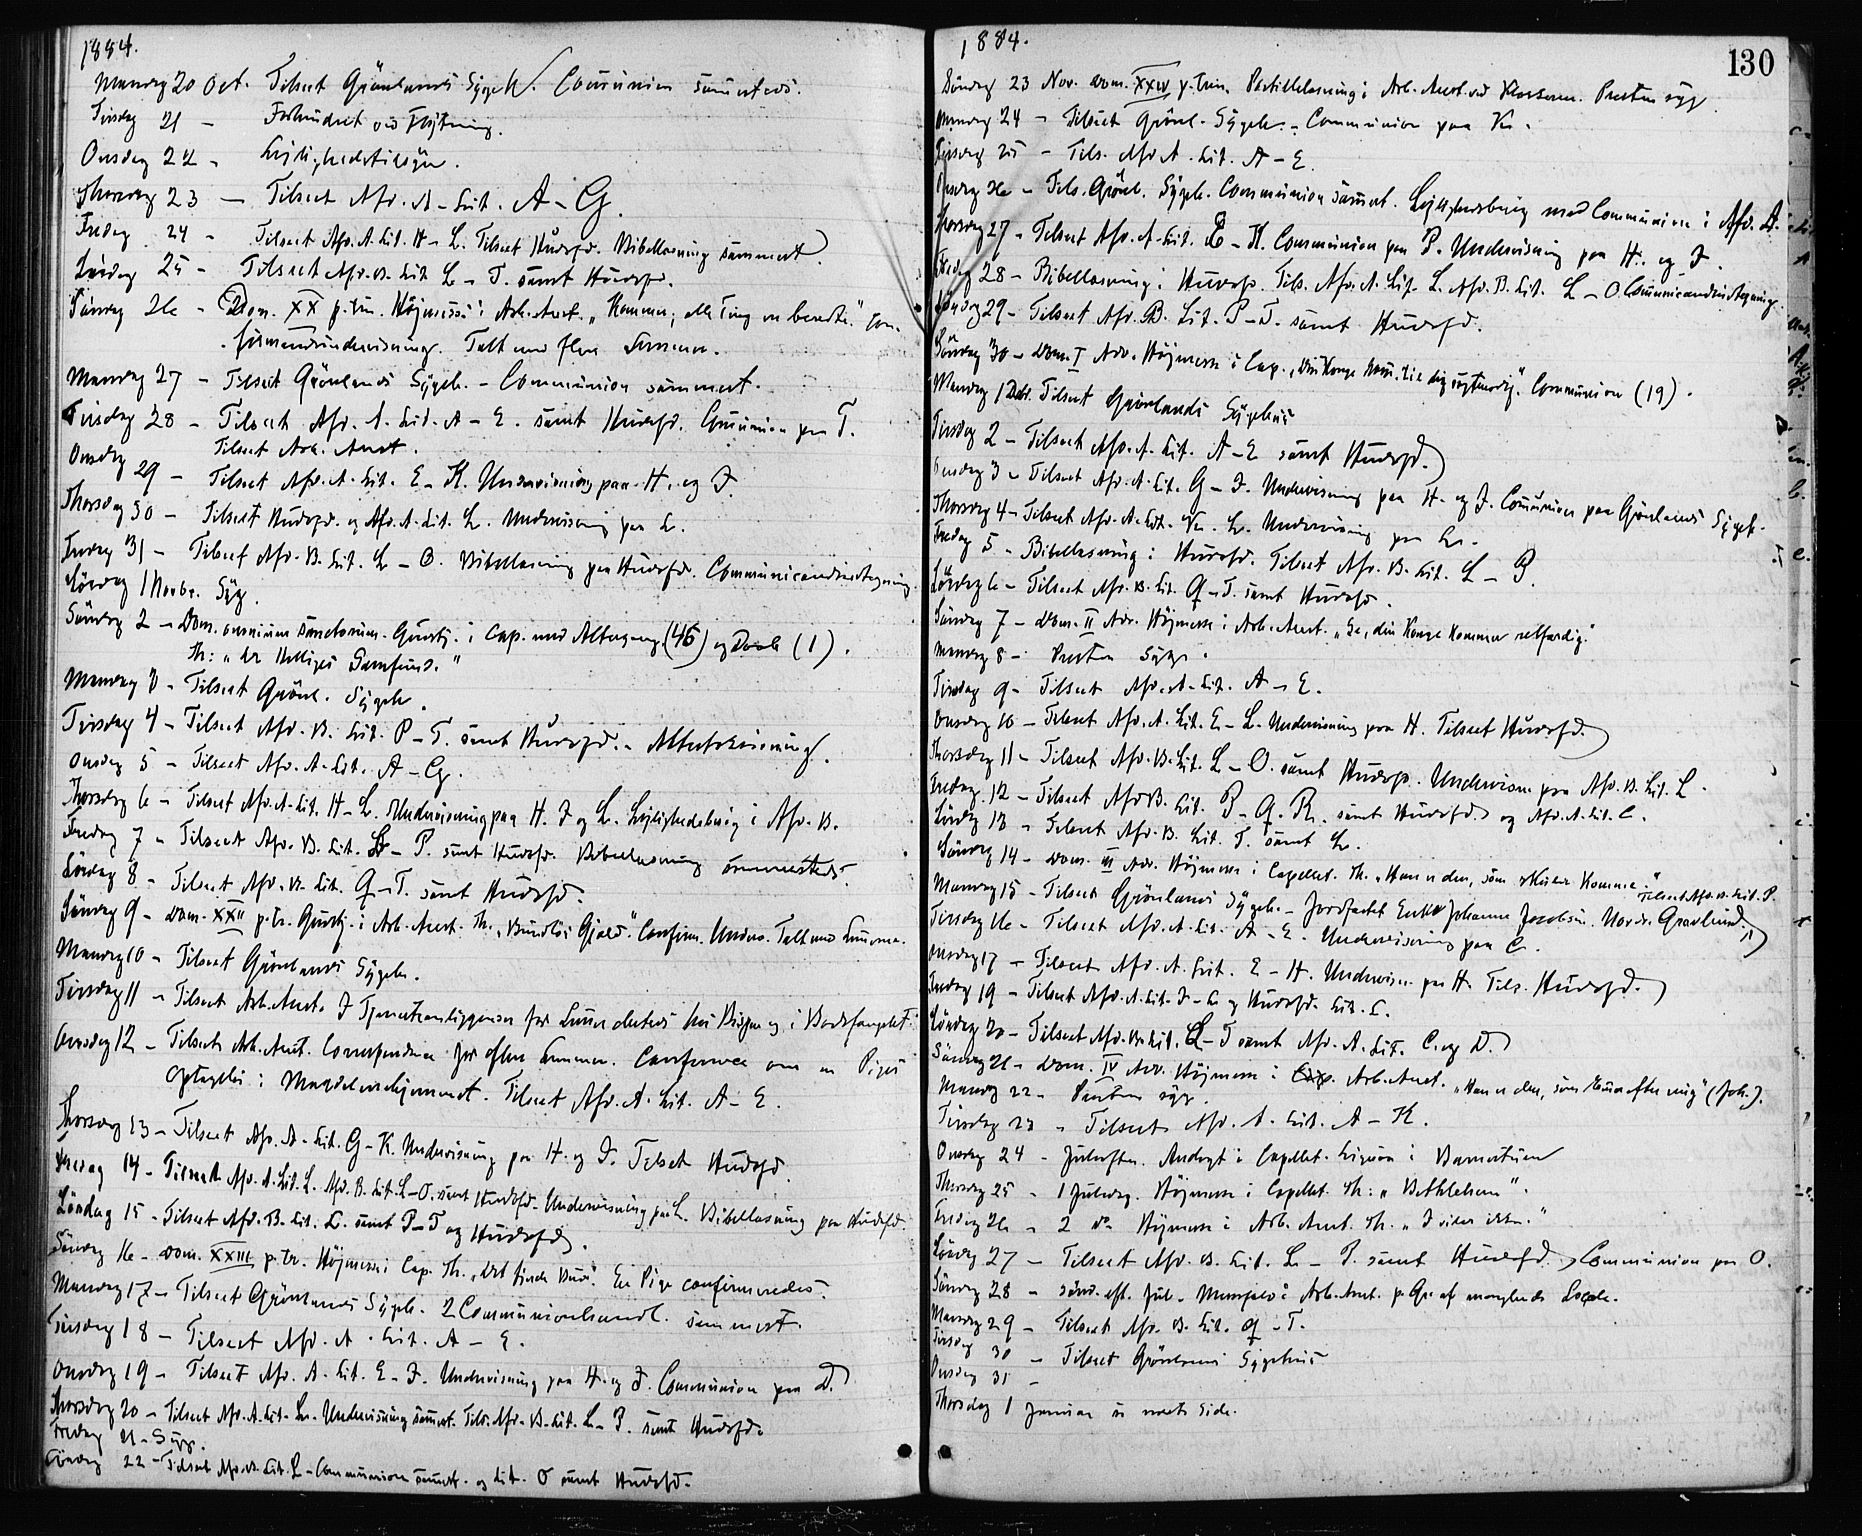 1884.
Mandag 20 Oct. Tilseet Grönlands Sygeh. Communion sammesteds.
Tirsdag 21 - Forhindret ved Flytning.
Onsdag 22 - Lejlighedstilsyn.
Thorsdag 23 - Tilseet Afd. A - Lit. A - G.
Fredag 24 - Tilseet Afd. A. Lit. H - L. Tilseet Hudafd. Bibellæsning sammest.
Lördag 25 - Tilseet Afd. B. Lit. L - T. samt Hudafd.
Söndag 26 - Dom. XX p. trin. Höjmesse i Arb. Anst. "Kommer, alle Ting er beredte." Con-
firmandundervisning. Talt med flere Lemmer.
Mandag 27 - Tilseet Grönlands Sygeh. - Communion sammest.
Tirsdag 28 - Tilseet Afd. A. Lit. A - E. samt Hudafd. Communion paa T.
Tilseet Arb. Anst.
Onsdag 29 - Tilseet Afd. A. Lit. E - K. Undervisning paa H. og I.
Thorsdag 30 - Tilseet Hudafd. og Afd. A. Lit. L. Undervisning paa L.
Fredag 31 - Tilseet Afd. B. Lit. L - O. Bibellæsning paa Hudafd. Communicandindtegning.
Lördag 1 Novbr. Syg.
Söndag 2 - Dom. omnium sanctorum. Gudstj. i Cap. med Altergang (46) og Daab (1).
Th: "de Helliges Samfund."
Mandag 3 - Tilseet Grönl. Sygeh.
Tirsdag 4 - Tilseet Afd. B. Lit. P - T. samt Hudafd. -
Onsdag 5 - Tilseet Afd. A. Lit. A - G.
Thorsdag 6 - Tilseet Afd. A. Lit. H - L. Undervisning paa H. I og L. Lejlighedsbesög i Afd. B.
Fredag 7 - Tilseet Afd. B. Lit. L - P. samt Hudafd. Bibellæsning sammesteds.
Lördag 8 - Tilseet Afd. B. Lit. Q - T. samt Hudafd.
Söndag 9 - Dom. XXII p. tr. Gudstj. i Arb. Anst. Th. "Bundlös Gjæld". Confirm. Underv. Talt med Lemmer.
Mandag 10 - Tilseet Grönlands Sygeh.
Tirsdag 11 - Tilseet Arb. Anst. I Tjenesteanliggender for Lemmer
Onsdag 12 - Tilseet Arb. Anst. Correspondance for flere Lemmer. Conference om en Piges
Optagelse i Magdalenehjemmet. Tilseet Afd. A. Lit. A - E.
Thorsdag 13 - Tilseet Afd. A - Lit. G - K. Undervisning paa H. og I. Tilseet Hudafd.
Fredag 14 - Tilseet Afd. A. Lit. L. Afd. B. Lit. L - O. samt Hudafd. Undervisning paa L. Bibellæsning paa Hudafd.
Löndag 15 - Tilseet Afd. B. Lit. L. samt P - T og Hudafd.
Söndag 16 - Dom. XXIII p. tr. Höjmesse i Cap. Th. En Pige confirmeredes.
Mandag 17 - Tilseet Grönlands Sygeh. 2 Communionhandl. sammest.
Tirsdag 18 - Tilseet Afd. A. Lit. A - E.
Onsdag 19 - Tilseet Afd. A. Lit. E - I. Undervisning paa H. og I. Communion paa D.
Thorsdag 20 - Tilseet Afd. A. Lit. L. Undervisning sammest. Tils. Afd. B. Lit. L - P. samt Hudafd.
Fredag 21 - Syg.
Lördag 22 - Tilseet Afd. B. Lit. L - Communion sammest. og Lit. O samt Hudafd.
1884.
130
Söndag 23 Nov. Dom. XXIV p. trin. Postillelæsning i Arb. Anst. ved Klokkeren. Præsten syg.
Mandag 24 - Tilseet Grönl. Sygeh. - Communion paa K.
Tirsdag 25 - Tils. Afd. A. Lit. A - E.
Onsdag 26 - Tils. Grönl. Sygeh. Communion sammest. Lejlighedsbesög med Communion i Afd. A.
Thorsdag 27 - Tilseet Afd. A. Lit. E - K. Communion paa P. Undervisning paa H. og I.
Fredag 28 - Bibellæsning i Hudafd. Tils. Afd. A. Lit. L. Afd. B. Lit. L - O. Communicandindtegning.
Lördag 29 - Tilseet Afd. B. Lit. P - T. samt Hudafd.
Söndag 30 - Dom. I Adv. Höjmesse i Cap. "Din Konge kom. til dig sagtmodig." Communion (19).
Mandag 1 Decbr. Tilseet Grönlands Sygehus
Tirsdag 2 - Tilseet Afd. A. Lit. A - E samt Hudafd.
Onsdag 3 - Tilseet Afd. A. Lit. G - I. Undervisning paa H. og I. Communion paa Grönlands Sygeh.
Thorsdag 4 - Tilseet Afd. A. Lit. K. L. Undervisning paa L.
Fredag 5 - Bibellæsning i Hudafd. Tilseet Afd. B. Lit. L - P.
Lördag 6 - Tilseet Afd. B. Lit. Q - T. samt Hudafd.
Söndag 7 - Dom. II Adv. Höjmesse i Arb. Anst. "Se, din Konge kommer retfærdig."
Mandag 8 - Præsten syg.
Tirsdag 9 - Tilseet Afd. A. Lit. A - E.
Onsdag 10 - Tilseet Afd. A. Lit. E - L. Undervisning paa H. Tilseet Hudafd.
Thorsdag 11 - Tilseet Afd. B. Lit. L - O. samt Hudafd. Undervisn. paa Afd. B. Lit. L.
Fredag 12 - Tilseet Afd. B. Lit. P - Q. R. samt Hudafd. og Afd. A. Lit. C.
Lördag 13 - Tilseet Afd. B. Lit. T. samt L.
Söndag 14 - Dom. III Adv. Höjmesse i Capellet. Th. "Han er den, som skulde komme."
Mandag 15 - Tilseet Grönlands Sygeh. - Jordfæstet Enke Johanne Jacobsen. Nordr. Gravlund. Tilseet Afd. B. Lit. P.
Tirsdag 16 - Tilseet Afd. A. Lit. A - E. Undervisning paa C.
Onsdag 17 - Tilseet Afd. A. Lit. E - H. Undervisn. paa H. Tils. Hudafd.
Fredag 19 - Tilseet Afd. A. Lit. I - L og Hudafd. Lit. L.
Lördag 20 - Tilseet Afd. B. Lit. L - T samt Afd. A. Lit. C. og D.
Söndag 21 - Dom. IV Adv. Höjmesse i Arb. Anst. "Han er den, som kommer efter mig" (Joh.).
Mandag 22 - Præsten syg.
Tirsdag 23 - Tilseet Afd. A. Lit. A - K.
Onsdag 24 - Juleaften. Andagt i Capellet. Ligesaa i Barnestuen
Thorsdag 25 - 1 Juledag. Höjmesse i Capellet. Th: "Bethlehem".
Fredag 26 - 2 do Höjmesse i Arb. Anst. Th. "I vilde ikke."
Lördag 27 - Tilseet Afd. B. Lit. L - P. samt Hudafd. Communion paa O.
Söndag 28 - Sönd. eft. Jul - Messefald i Arb. Anst. p. Gr. af manglende Locale.
Mandag 29 - Tilseet Afd. B. Lit. Q - T.
Tirsdag 30 - Tilseet Grönlands Sygehus
Onsdag 31 -
Thorsdag 1 Januar se næste Side.